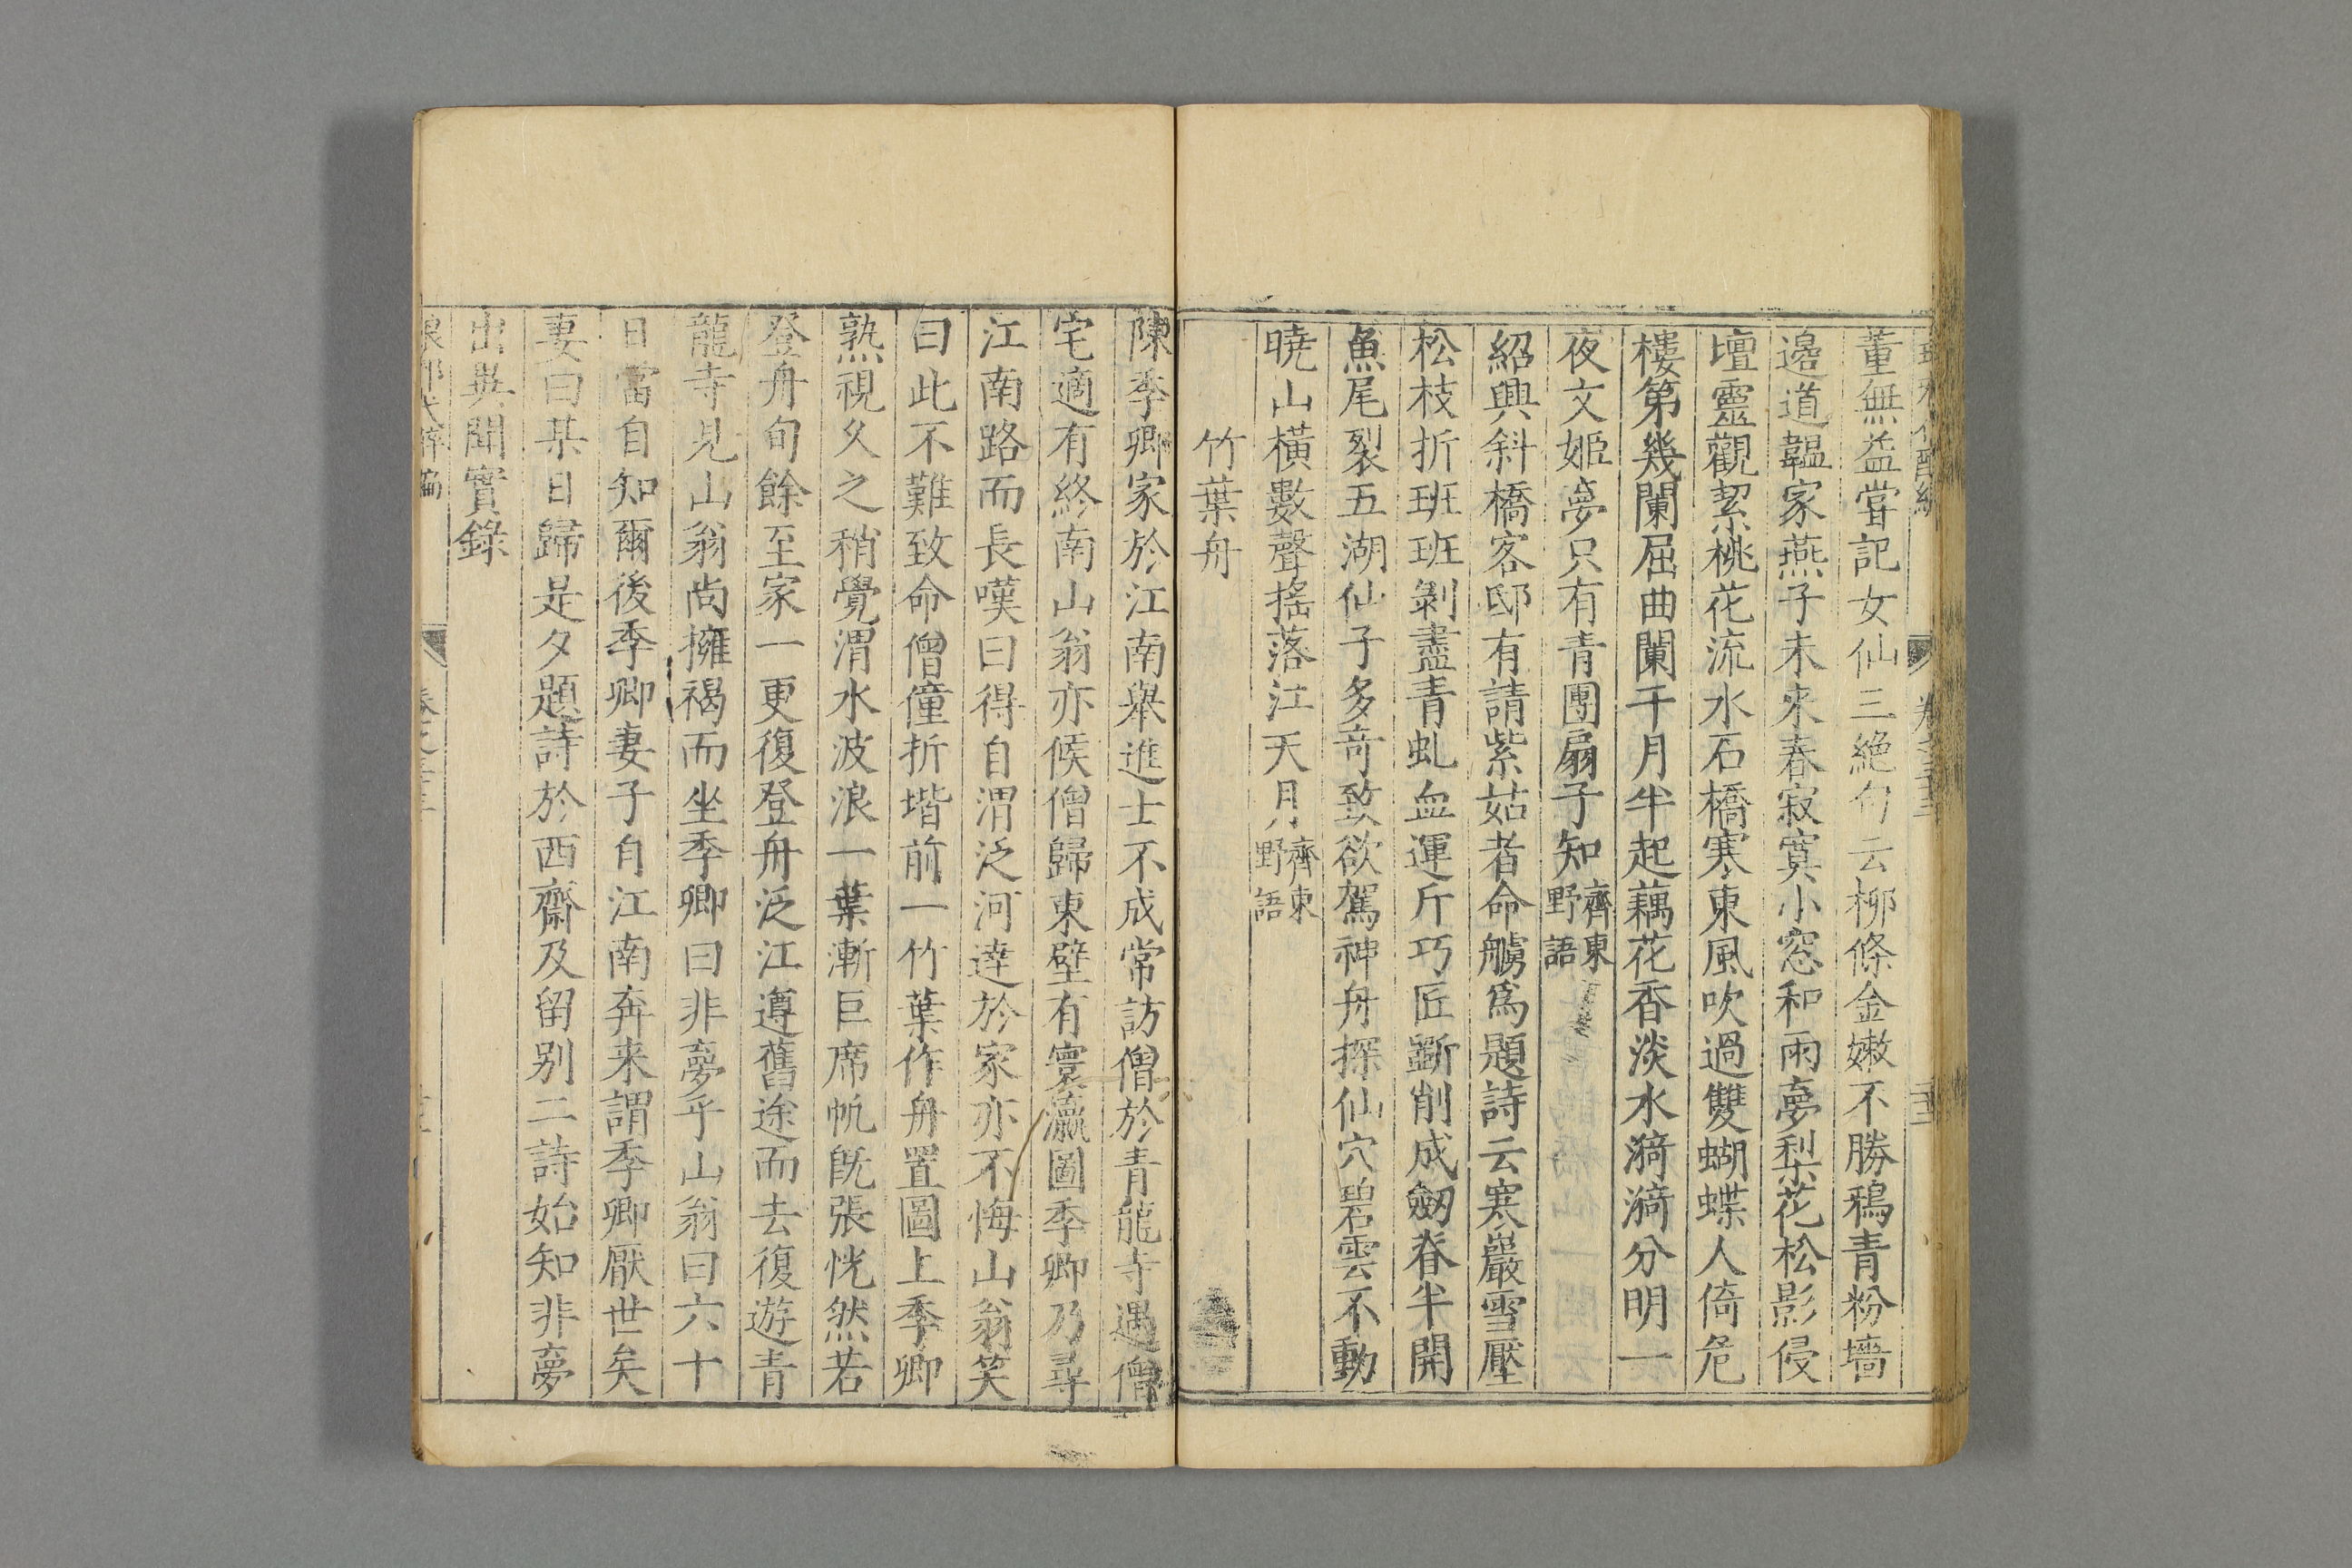 董無益嘗記女仙三絶句云柳條金嫩不勝鴉青粉墻
邉道韞家燕子未來春寂寞小窓和雨夢梨花松影侵
壇靈觀絜桃花流水石橋寒東風吹過雙蝴蝶人倚危
樓第幾闌屈曲闌干月半起藕花香淡水漪漪分明一
夜文姬夢只有青團扇子知齊東野語
紹興斜橋客邸有請紫姑者命觴爲題詩云寒巖雪壓
松枝折班班剝盡青虬血運斤巧匠斲削成劒脊半開
魚尾裂五湖仙子多奇致欲駕神舟探仙穴碧雲不動
曉山橫數聲摇落江天月齊東野語
竹葉舟
陳季卿家於江南舉進士不成常訪僧於青龍寺遇僧
宅適有終南山翁亦候僧歸東壁有寰瀛圖季卿乃尋
江南路而長嘆曰得自渭泛河達於家亦不悔山翁笑
曰此不難致命僧僮折堦前一竹葉作舟置圖上季卿
熟視久之稍覺渭水波浪一葉漸巨席帆旣張恍然若
登舟旬餘至家一更復登舟泛江遵舊途而去復遊青
龍寺見山翁尚擁褐而坐季卿曰非夢乎山翁曰六十
日當自知爾後季卿妻子自江南奔来謂季卿厭世矣
妻曰某日歸是夕題詩於西齋及留别二詩始知非夢
出異聞實錄